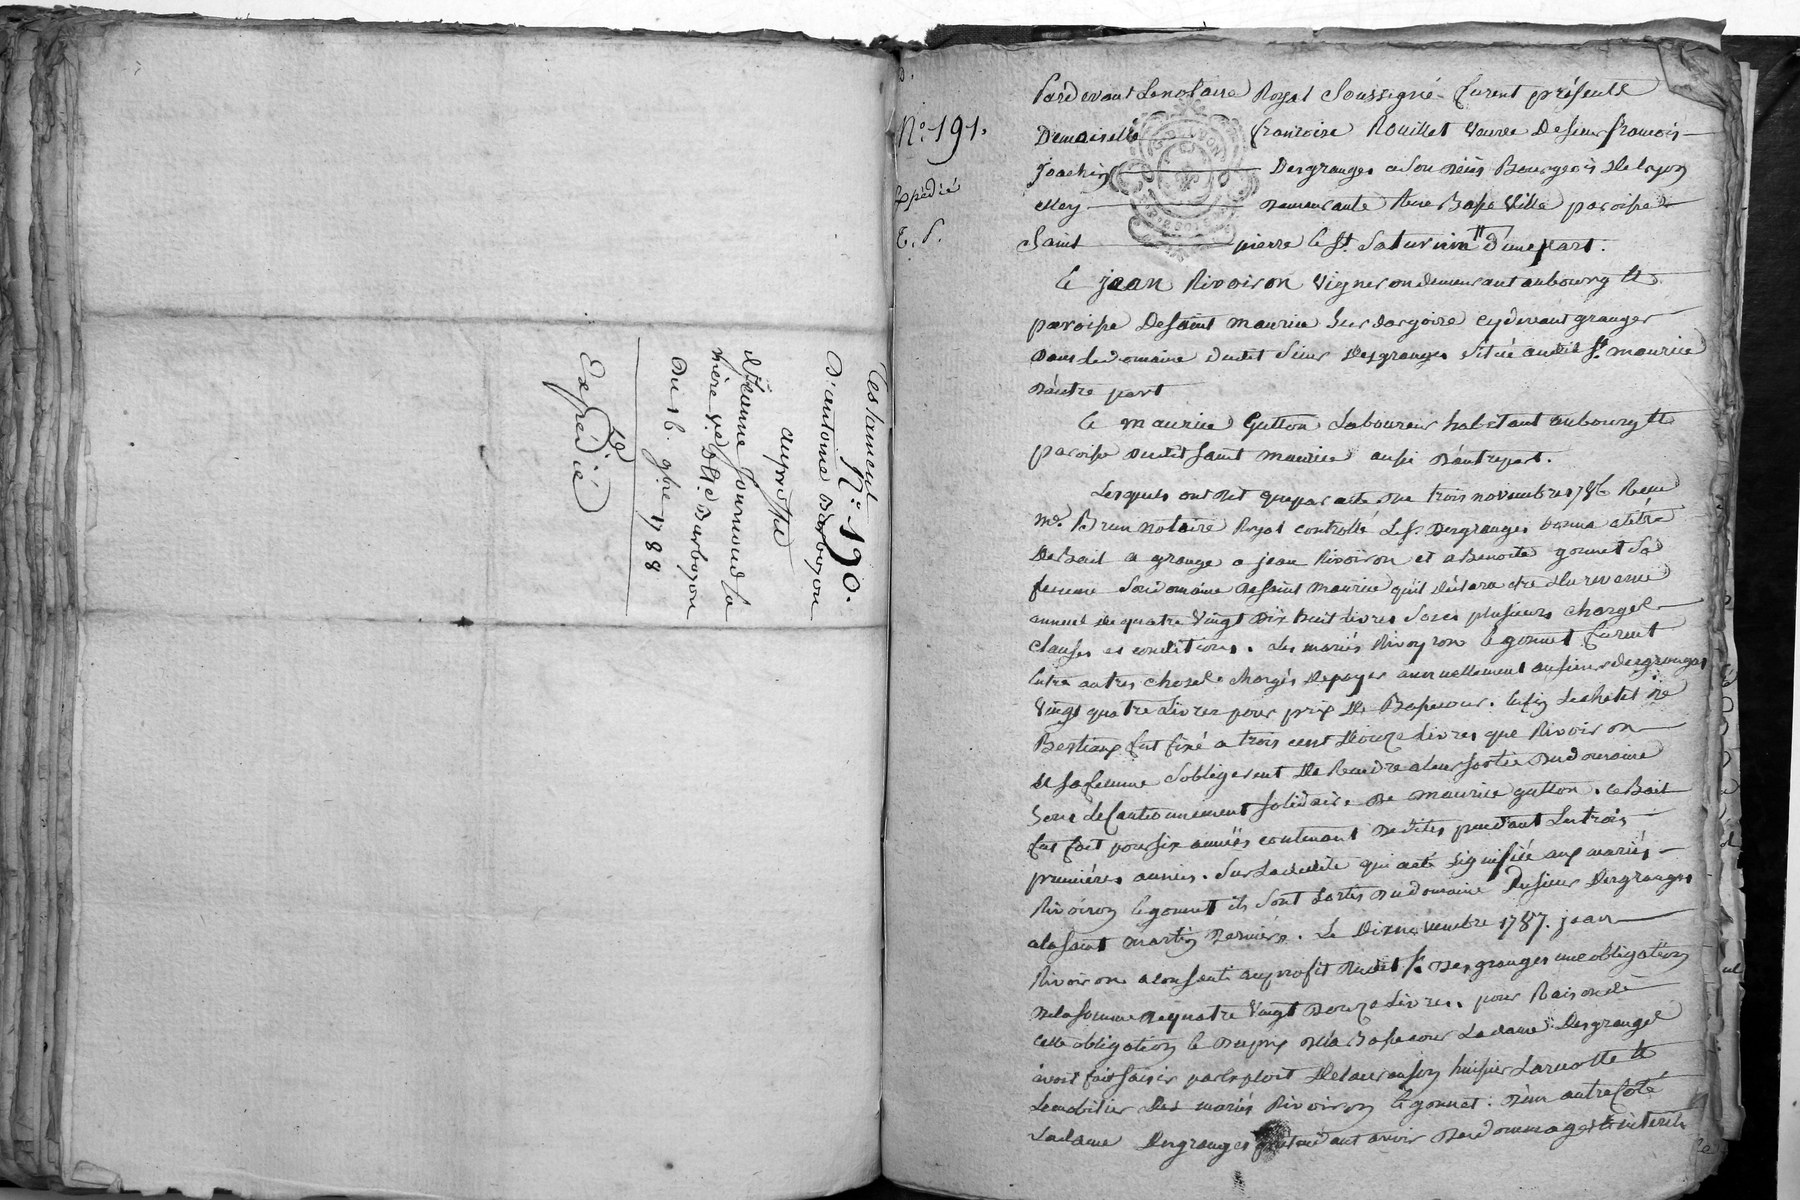 N.° 190.
Testament
D'antoine Barboyon
auproffit
d'Jeanne Journoud sa
mère v.e D'Et.e Barboyon
Du 16. 9bre 1788
Expédié
N.° 191.
Expédié
Pardevant Le notaire Royal Soussigné furent présents
Demoiselle françoise Rouillet veuve De sieur françois
Joachin Desgranges a son déces Bourgeois De Lyon
elley demeurante Rue Basse Ville paroisse
Saint pierre et St. Saturnin d'une part.
Et jean Rivoiron Vigneron demeurant au bourg et
paroisse De saint maurice sur dargoire cydevant granger
dans le domaine dudit sieur Desgranges situé audit St. maurice
D'autre part
Et maurice Gutton Laboureur habitant au bourg et
paroisse dudit saint maurice aussi D'autre part.
Lesquels ont dit que par acte du trois novembre 1786 Reçu
me. Brun notaire Royal controllé Le Sr. Desgranges donna a titre
De Bail a grange a jean Rivoiron et a Benoite gonnet Sa
femme son domaine De saint maurice qu'il déclara être d'un revenu
annuel de quatre Vingt Dix huit Livres sous plusieurs charges
clauses et conditions. Les mariés Rivoyron et gonnet furent
entre autres choses chargés De payer annuellement au sieur desgranges
Vingt quatre Livres pour prix de Bassecour. Enfin Le cheptel de
Bestiaux fut fixé a trois cent Douze Livres que Rivoiron
et sa femme s'obligerent De Rendre a leur sortie du domaine
sous le Cautionnement solidaire de maurice gutton. Ce Bail
fut fait pour six années contenant dedites pendant Les trois
premières années. Sur La dedite qui a été signifiée aux mariés
Rivoiron et gonnet ils sont sortis du domaine Du sieur Desgranges
a la saint martin derniere. Le Dix novembre 1787. jean
Rivoiron a consenti au profit dudit Sr. Desgranges une obligation
de la somme de quatre Vingt Douze Livres. pour Raison de
cette obligation et du prix de la Bassecour La dame Desgranges
avoit fait saisir par Exploit De huissier Larue et
Le mobilier Des mariés Rivoiron et gonnet. D'un autre Coté
La dame Desgranges prétendant avoir des dommages et interêts